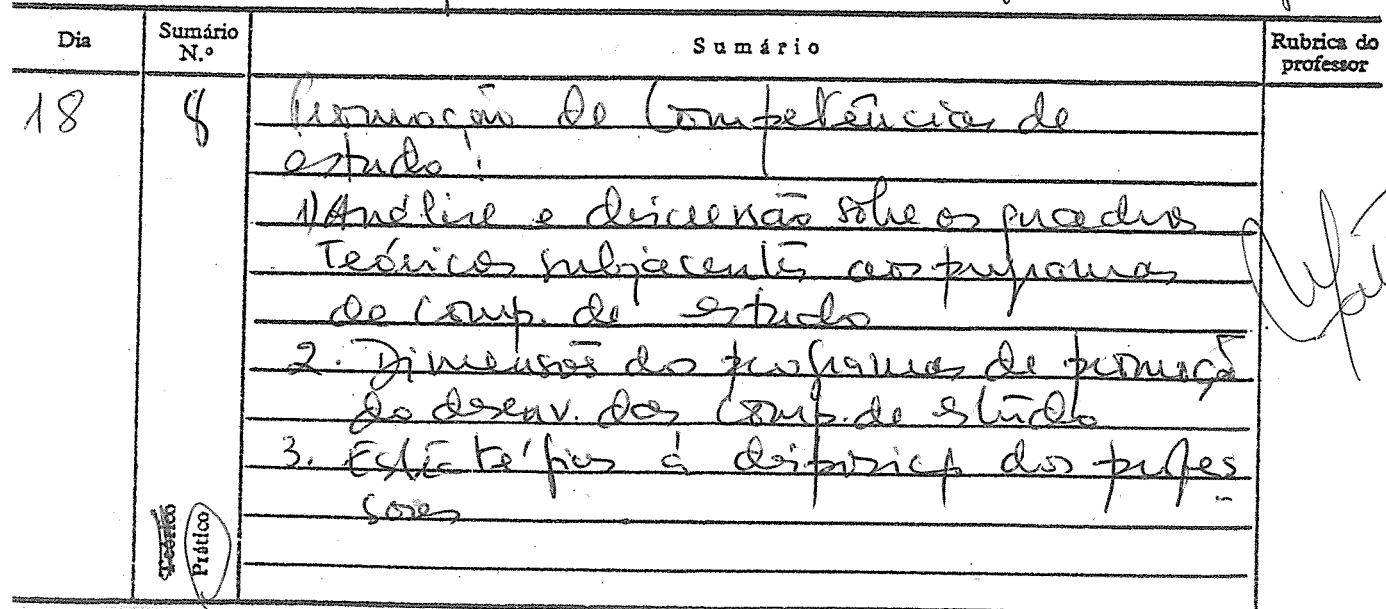 Dia
Sumário N.º
Sumário
Rubrica do professor
18
8
Promoção de Competências de
estudo:
1) Análise e discussão sobre os quadros
Teóricos subjacentes aos programas
de Comp. de estudo
2. Dimensões dos programas de promoção
do desenv. das Comp. de estudo
3. Estratégias à disposição dos profes
sores
Teórico
Prático